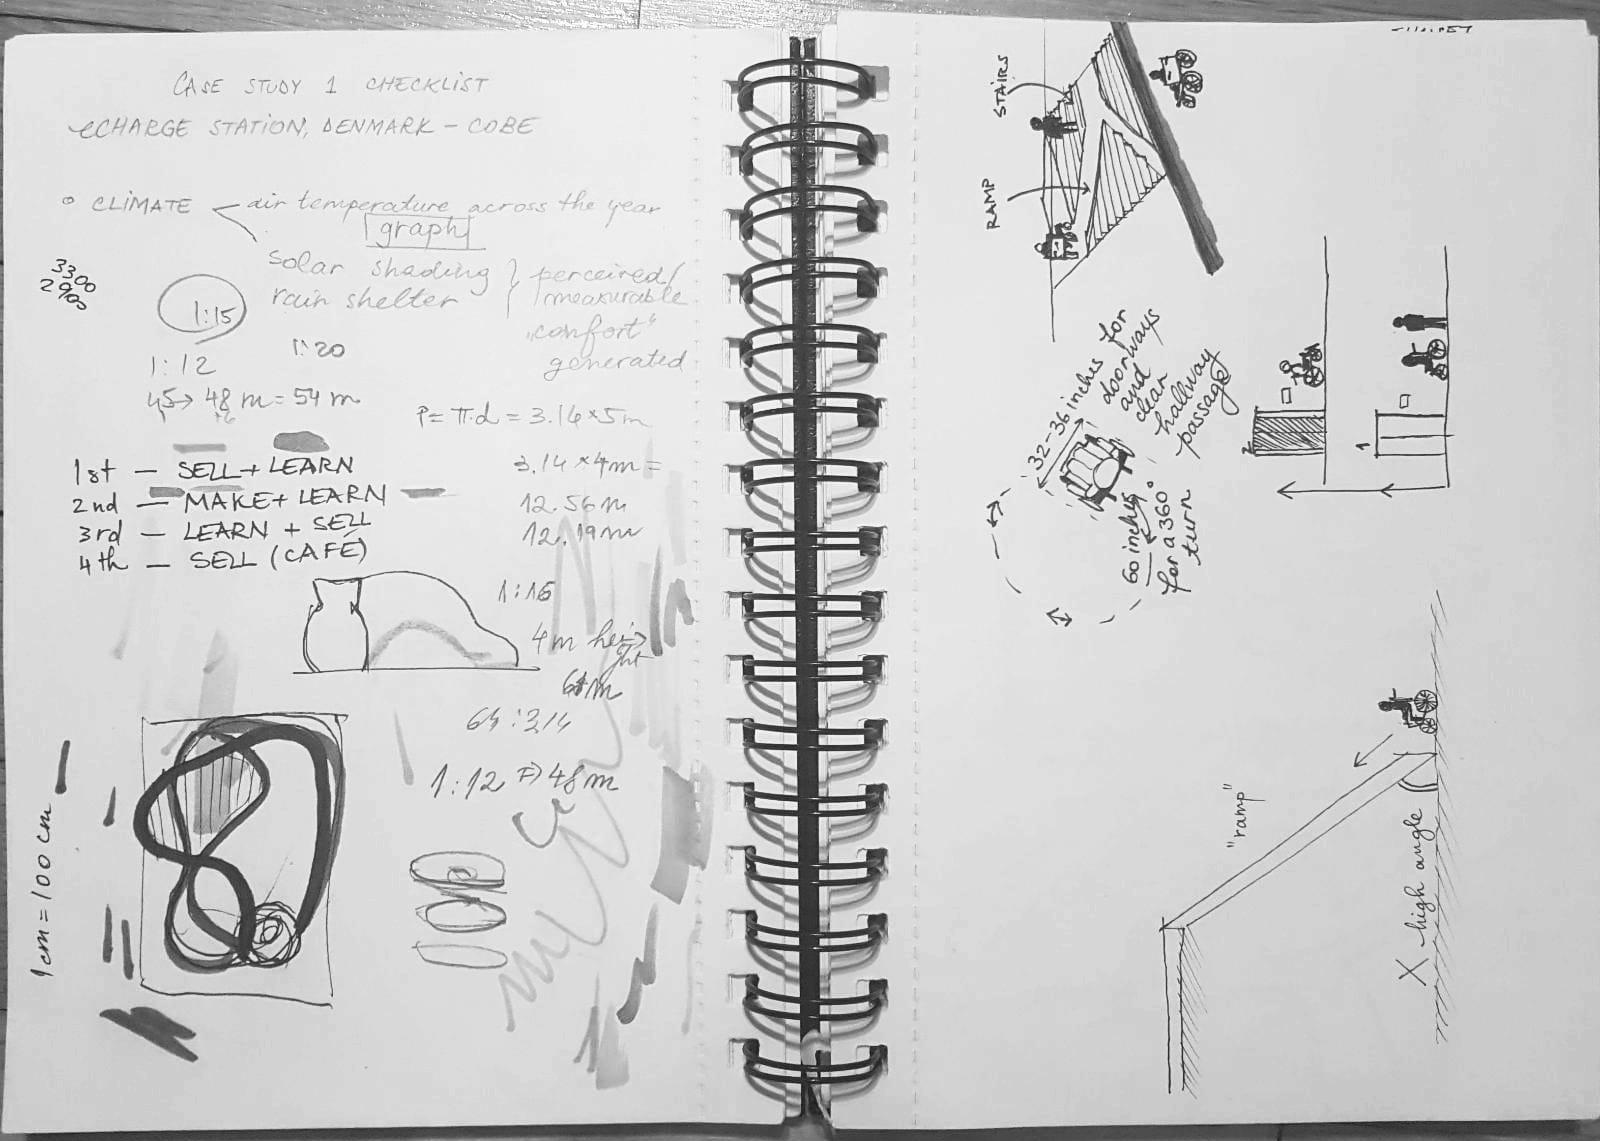 CASE STUDY 1 CHECKLIST
eCHARGE STATION, DENMARK - COBE
CLIMATE
air temperature across the year
graph
solar shading
rain shelter
perceived/
measurable
"confort"
generated
3300
1:15
1:12
1:20
45 → 48 m = 54 m
P = π·d = 3.14 × 5 m
3.14 × 4m =
12.56m
12.19m
1st — SELL + LEARN
2nd — MAKE + LEARN —
3rd — LEARN + SELL
4th — SELL (CAFÉ)
1:16
4m height
64m
64:3,14
1:12 => 48m
1cm = 100 cm
STAIRS
RAMP
32-36 inches for
doorways
and
clear
hallway
passage
60 inches
for a 360°
turn
2
1
"ramp"
X high angle